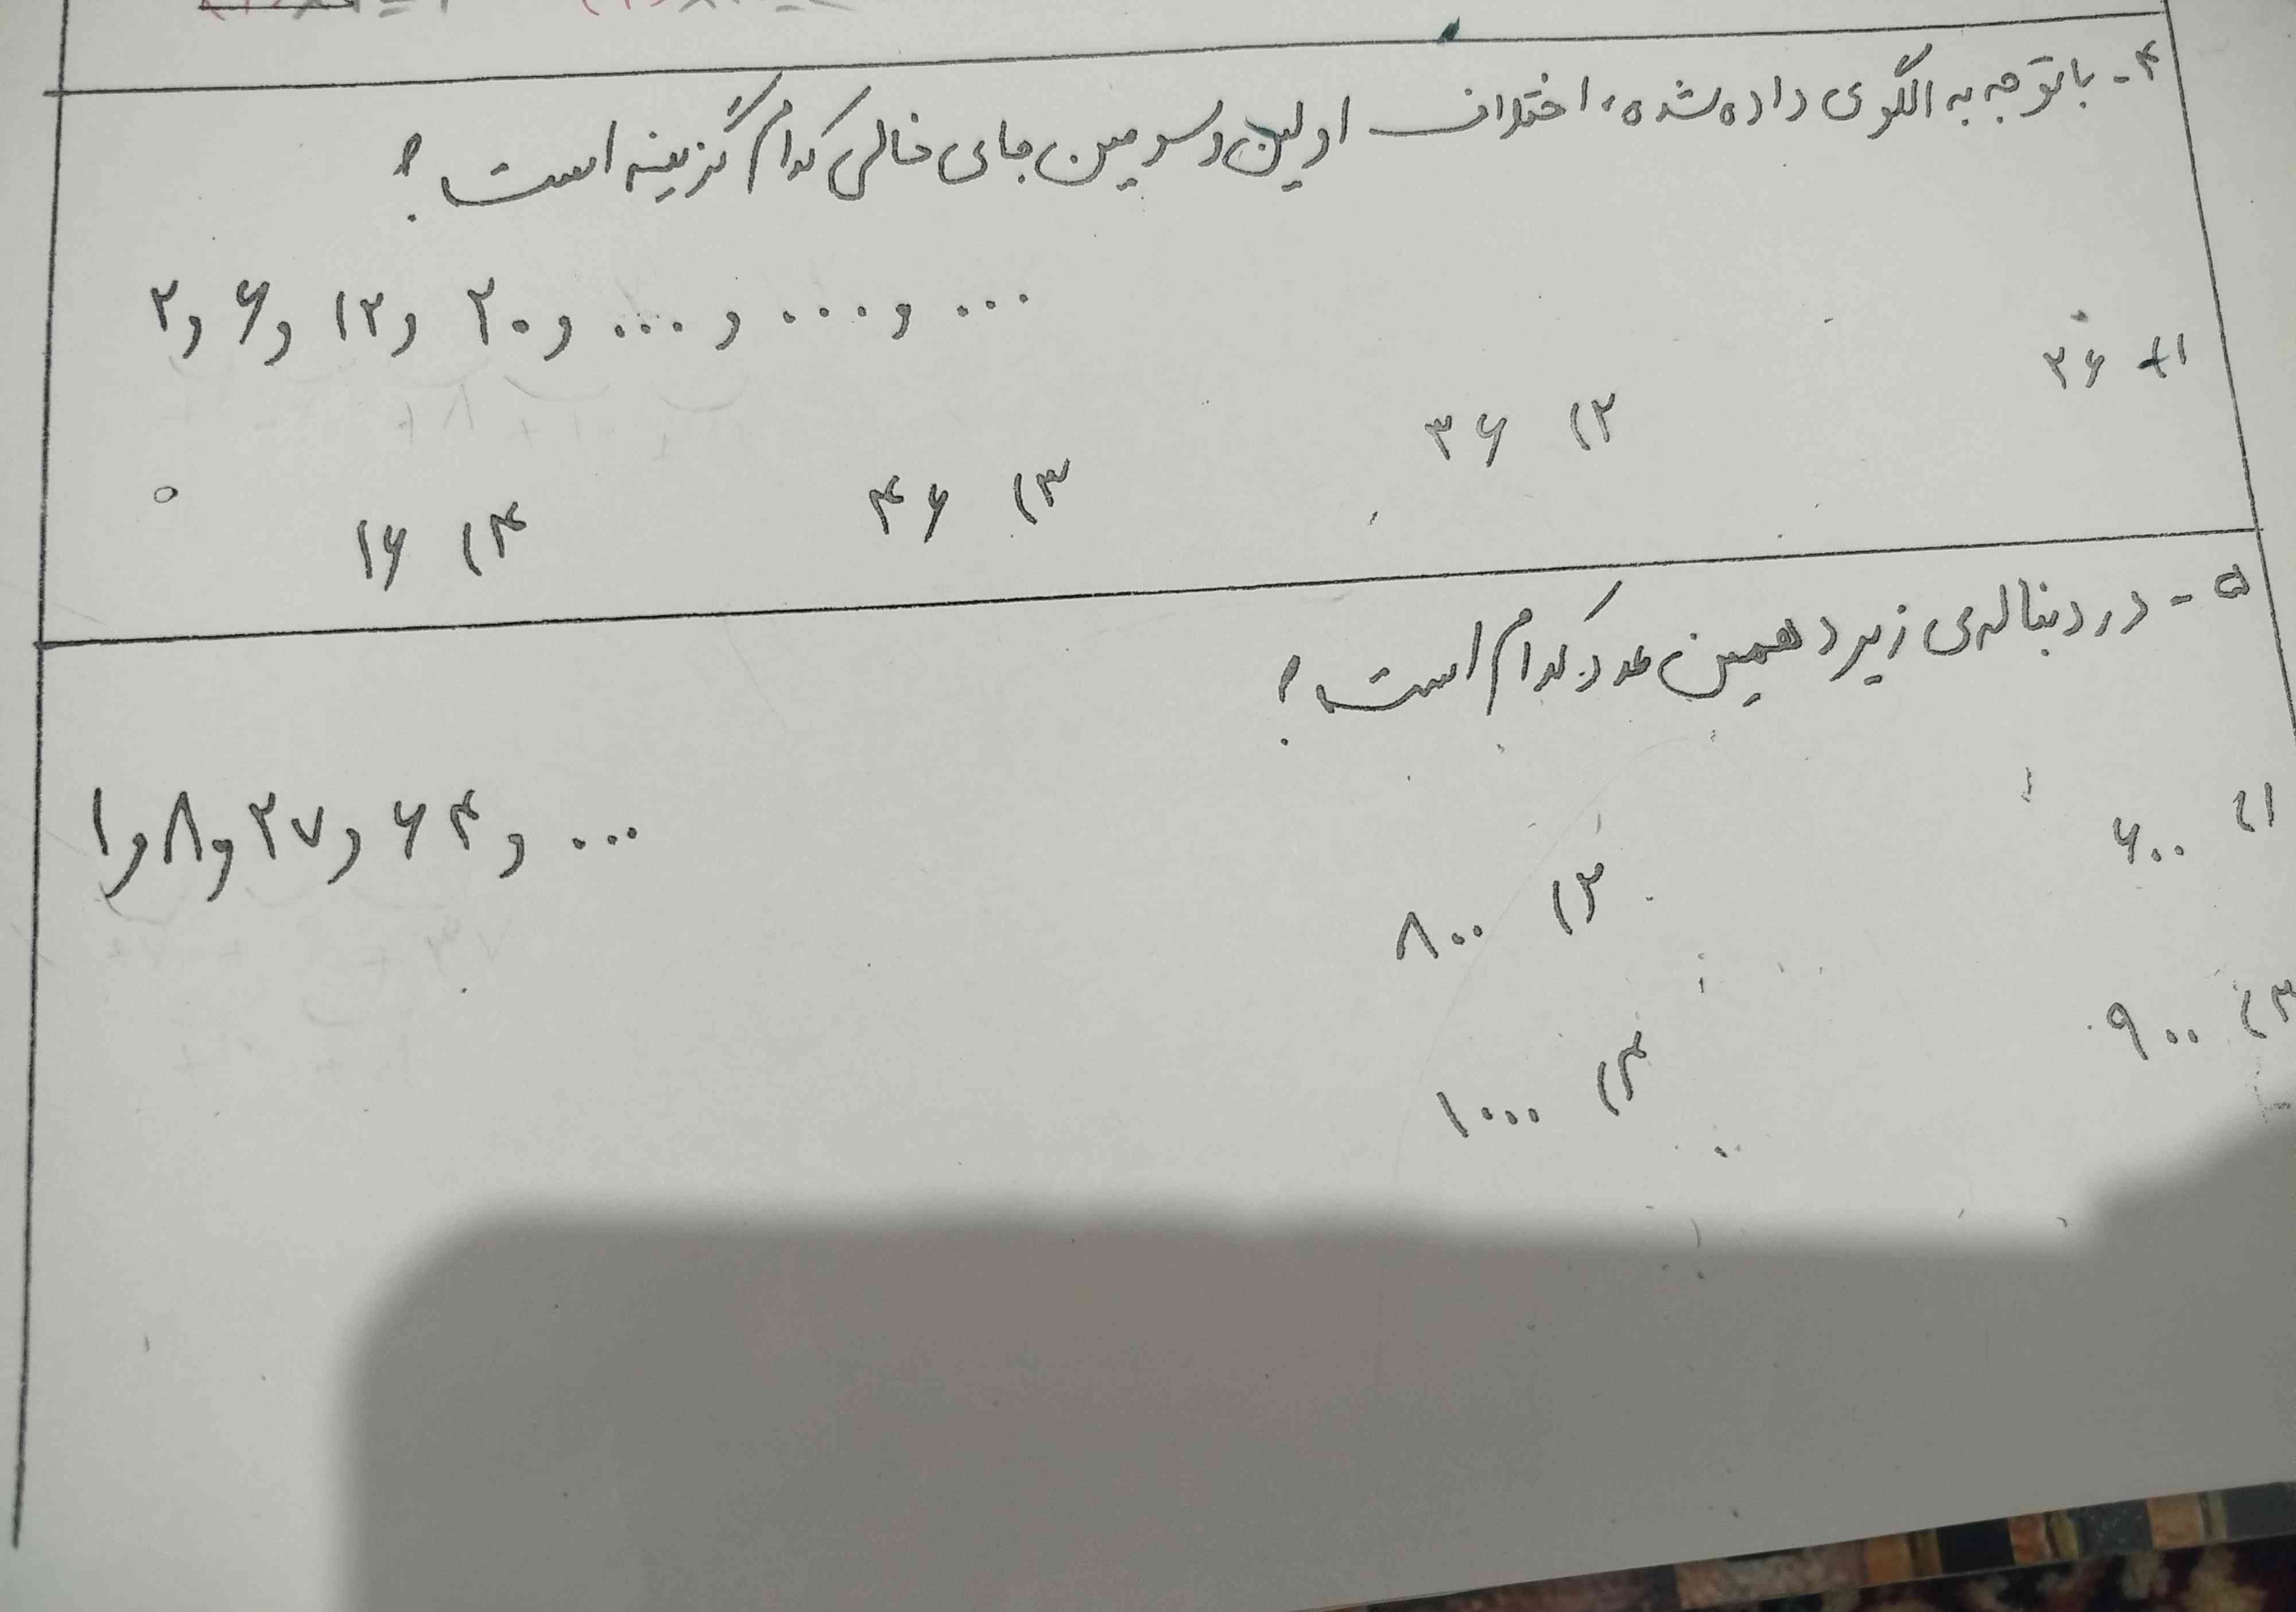 ۴- باتوجه به الگوی داده شده، اختلاف اولین و سومین جای خالی کدام گزینه است؟
۲ و ۶ و ۱۲ و ۲۰ و ... و ... و ...
۱) ۲۶
۲) ۳۶
۳) ۴۶
۴) ۱۶
۵- در دنباله‌ی زیر دهمین عدد کدام است؟
۱ و ۸ و ۲۷ و ۶۴ و ...
۱) ۶۰۰
۲) ۸۰۰
۳) ۹۰۰
۴) ۱۰۰۰